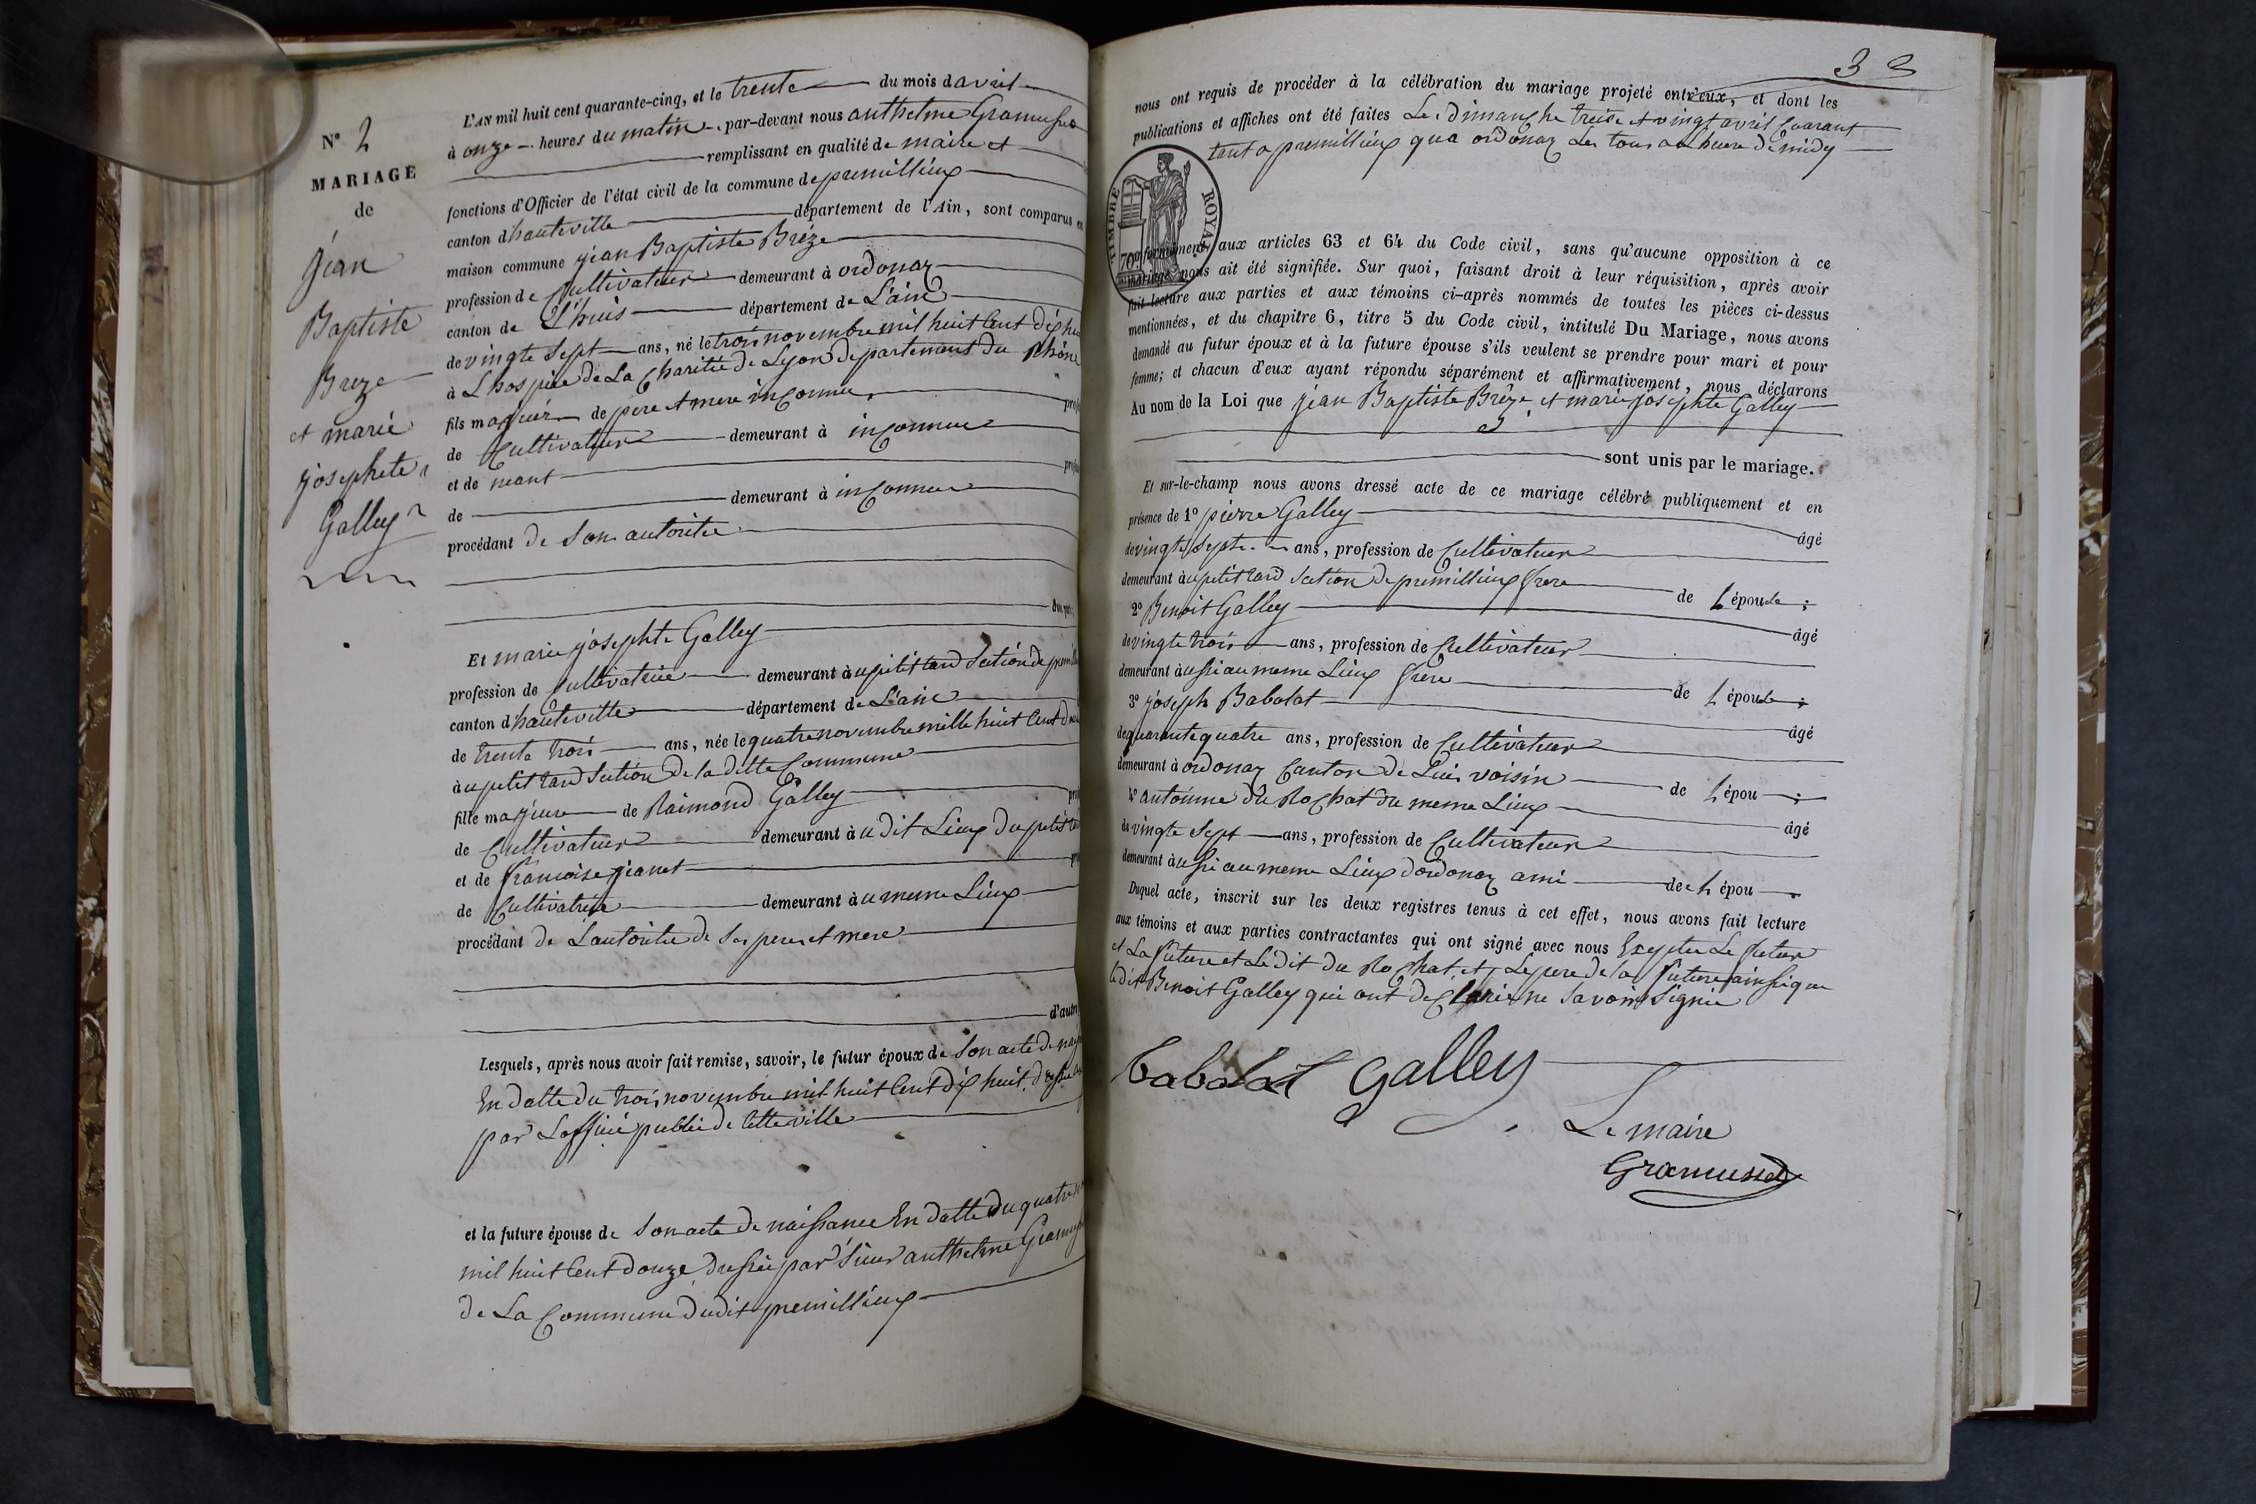 N° 2
MARIAGE
de
jean
Baptiste
Breze
et marie
josephete
Galley
L'AN mil huit cent quarante-cinq, et le trente du mois d avril
à onze heures du matin, par-devant nous anthelme Gramusset
remplissant en qualité de maire et
fonctions d'Officier de l'état civil de la commune de premillieux
canton d hauteville département de l'Ain, sont comparus en
maison commune jean Baptiste Brèze
profession de Cultivateur demeurant à ordonaz
canton de L'huis département de L'ain
de vingte sept ans, né le trois novembre mil huit Cent dix huit
à L hospice de La Charitée de Lyon département du Rhône
fils majeur de pere et mere inconnu, profe
de Cultivateur demeurant à inconnue
et de neant profe
de demeurant à inconnue
procédant de son autoritée
d'une part;
Et marie josephte Galley
profession de Cultivatrice demeurant à u petit tard section de premill
canton d hauteville département de L'ain
de trente trois ans, née le quatre novembre mille huit Cent d
à u petit tard section de la ditte Commune
fille majeure de Raimond Galley pro
de Cultivateur demeurant à u dit Lieux du petit ta
et de francoise jeanet pro
de Cultivatrice demeurant à u meme Lieux
procédant de L'autoritée de ses pere et mere
d'autre
Lesquels, après nous avoir fait remise, savoir, le futur époux de son acte de nai
En datte du trois novembre mil huit Cent dix huit,
par L'officié public de cette ville
et la future épouse de son acte de naissance En datte du quatre
mil huit Cent douze dressée par sieur anthelme Gramuss
de La Commune dudit premillieux
33
nous ont requis de procéder à la célébration du mariage projeté entr'eux, et dont les
publications et affiches ont été faites Les dimanche treize et vingt avril Courant
tant a premillieux qua ordonaz Les tous a L heure de midy
TIMBRE ROYAL
70c
conformément aux articles 63 et 64 du Code civil, sans qu'aucune opposition à ce
mariage nous ait été signifiée. Sur quoi, faisant droit à leur réquisition, après avoir
fait lecture aux parties et aux témoins ci-après nommés de toutes les pièces ci-dessus
mentionnées, et du chapitre 6, titre 5 du Code civil, intitulé Du Mariage, nous avons
demandé au futur époux et à la future épouse s'ils veulent se prendre pour mari et pour
femme; et chacun d'eux ayant répondu séparément et affirmativement, nous déclarons
Au nom de la Loi que jean Baptiste Brèze et marie josephte Galley
sont unis par le mariage.
Et sur-le-champ nous avons dressé acte de ce mariage célébré publiquement et en
présence de 1° pierre Galley âgé
de vingte sept ans, profession de Cultivateur
demeurant à u petit tard section de premillieux frere de L épouse;
2° Benoit Galley âgé
de vingte trois ans, profession de Cultivateur
demeurant à ussi au meme Lieux frere de L épouse;
3° joseph Babolat âgé
de quarante quatre ans, profession de Cultivateur
demeurant à ordonaz Canton de Luis voisin de L épou;
4° antoinne du Rochat du meme Lieux âgé
de vingte sept ans, profession de Cultivateur
demeurant à ussi au meme Lieux dordonaz ami de L épou.
Duquel acte, inscrit sur les deux registres tenus à cet effet, nous avons fait lecture
aux témoins et aux parties contractantes qui ont signé avec nous Exeptée Le futur
et La future et Ledit du Rochat et Le pere de la future ainsi que
Ledit Benoit Galley qui ont declarée ne savoir signée
babolat Galley
Le maire
Gramusset